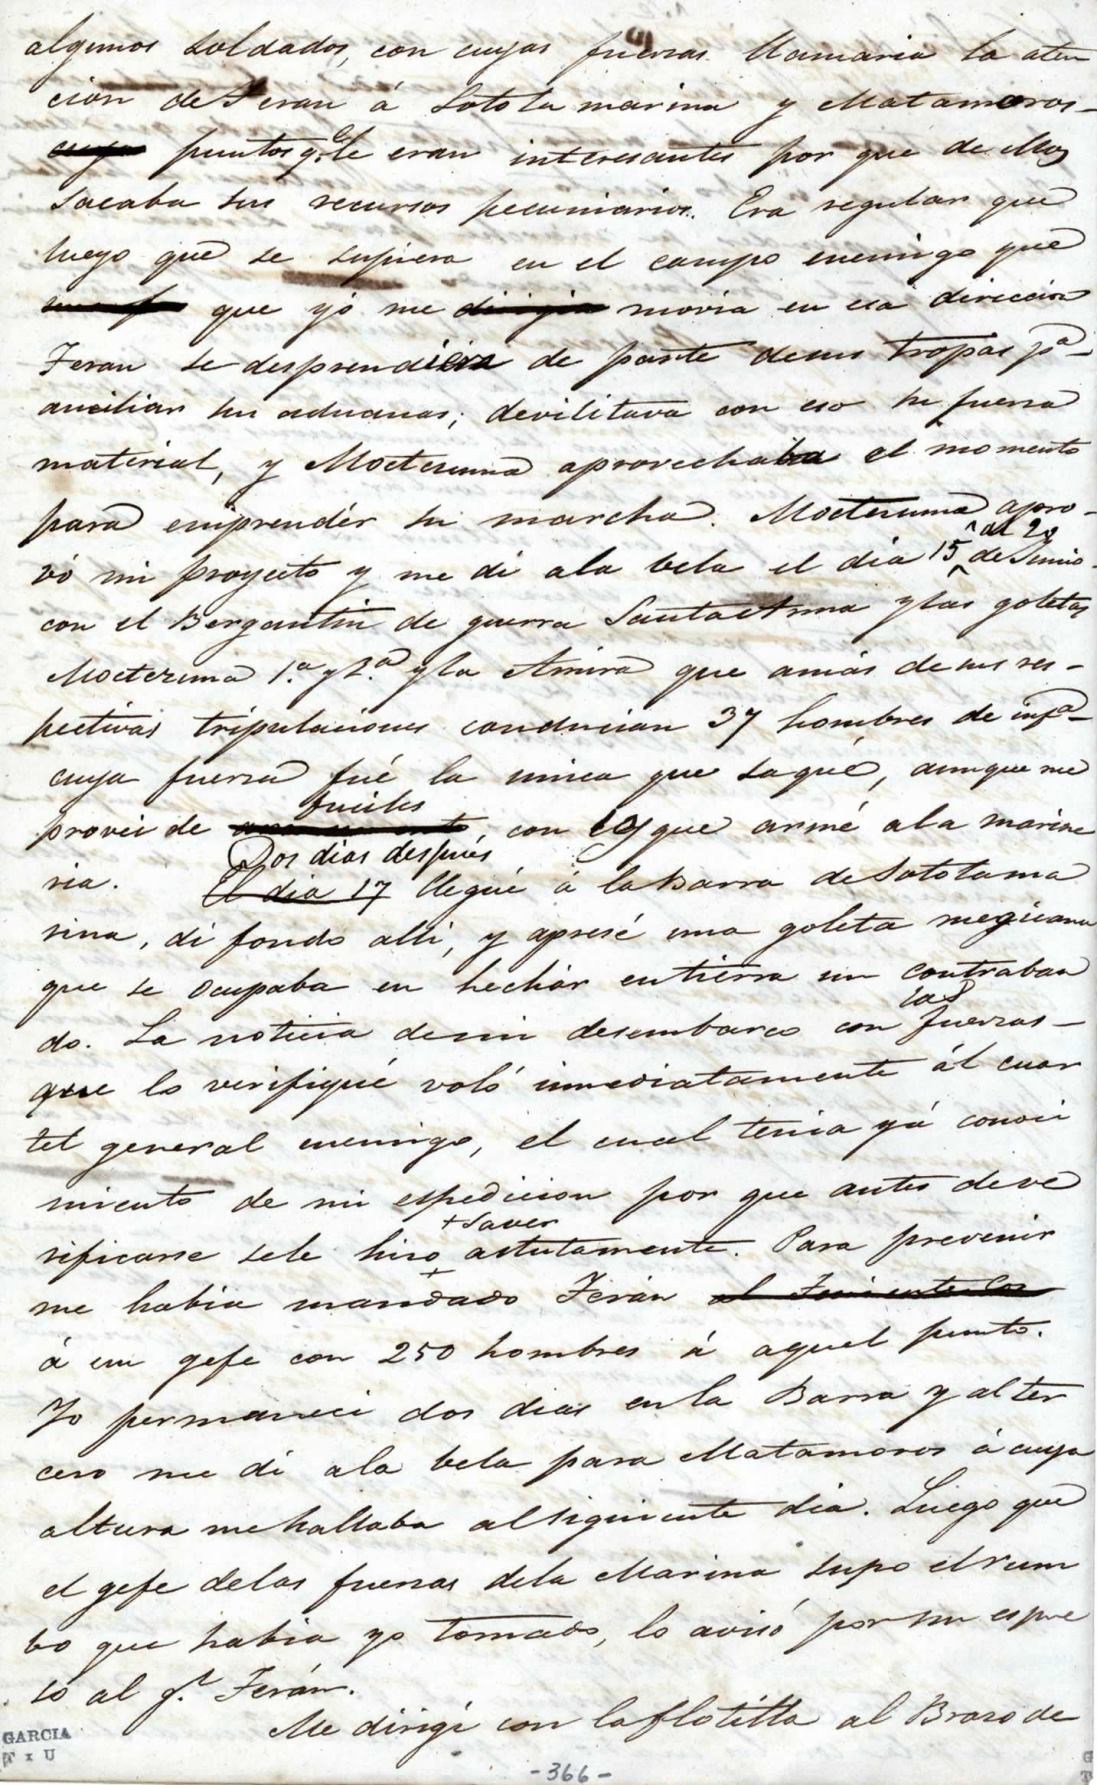 algunos soldados, con cuyas fuersas llamaria la aten
cion de Teran á Sotolamarina y Matamoros-
puntos q.e le eran interesantes por que de ellos
sacaba sus recursos pecuniarios. Era regular que
luego que se supiera en el campo enemigo que
que yó me movia en esa direccion
Teran se desprendiera de parte de sus tropas p.a-
auciliar sus aduanas; devilitava con eso su fuersa
material, y Moctesuma aprovechaba el momento
para emprendér su marcha. Moctesuma apro-
al 20
vó mi proyecto y me di ala bela el dia 15 de Junio-
con el Bergantin de guerra Santa Anna y las goletas
Moctezuma 1.a y 2.a y la Amira que amás de sus res-
pectivas tripulaciones conducian 37 hombres de inf.a-
cuya fuersa fué la unica que saqué, aunque me
fuciles
provei de , con los que armé ala marine
Dos dias después
ria. El dia 17 llegué á la Barra de Sotolama
rina, di fondo alli, y apresé una goleta megicana
que se ocupaba en hechár en tierra un contraban
las
do. La noticia de mi desembarco con fuersas-
que lo verifiqué voló inmediatamente ál cuar
tel general enemigo, el cual tenia yá conoci
miento de mi espedicion por que antes de ve
+saver
rificarse sele hiso astutamente. Para prevenir
me habia mandado Terán
á un gefe con 250 hombres á aquel punto.
Yo permaneci dos dias en la Barra y al ter
cero me di ala bela para Matamoros á cuya
altura me hallaba al siguiente dia. Luego que
el gefe delas fuersas dela Marina supo el rum
bo que habia yo tomado, lo avisó por un espre
so al g.l Terán.
Me dirigi con la flotilla al Braso de
GARCIA
-366-